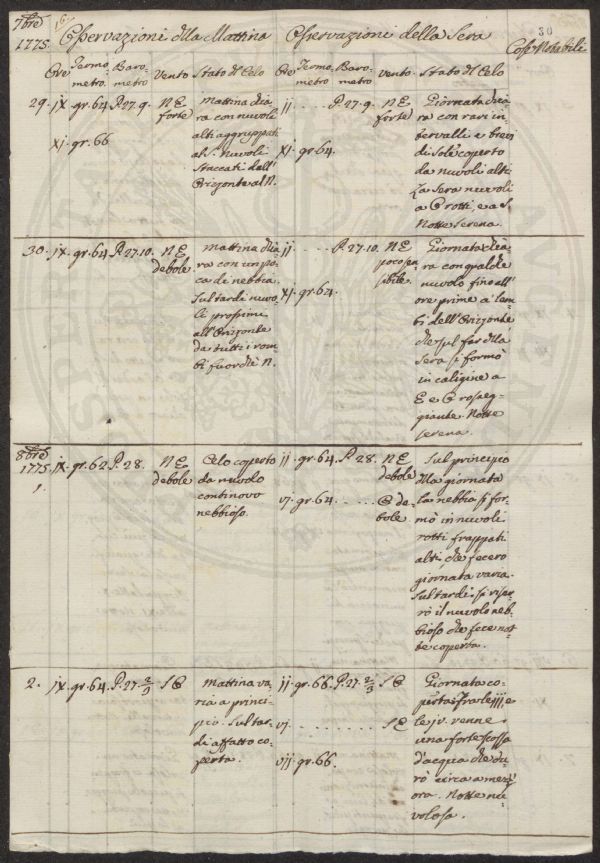 7bre 1775. Osservazioni dlla Mattina Osservazioni della Sera Cose Notabili
30
Ore Termometro. Barometro Vento Stato dl Celo Ore Termometro. Barometro vento. Stato dl Celo
29. jx. gr. 64. P. 27. 9. N E forte
Mattina chia
ra con nuvoli
alti aggruppati
al S. Nuvoli
Staccati dall'
Orizonte al N.
xj. gr. 66.
ij . . . . . P. 27. 9. N E forte
Giornata chia
ra con rari in
tervalli e brevi
di Sole coperto
da nuvoli alti
La Sera nuvoli
a O rotti, e a S.
Notte Serena.
xj. gr. 64.
30. jx. gr. 64. P. 27. 10. N E debole.
Mattina chia
ra con un po
ca di nebbia.
Sul tardi nuvo
li prossimi
all'Orizonte
da tutti i rom
bi fuor che N.
ij . . . . . P. 27. 10. N E poco sen sibile.
xj. gr. 64.
Giornata chia
ra con qualche
nuvolo fino all'
ore prime a lem
bi dell'Orizonte
che sul far dlla
Sera si formò
in caligine a
E e O rosseg
giante. Notte
serena.
8bre 1775.
1. jx. gr. 62. P. 28. N E debole
Celo coperto
da nuvolo
continovo
nebbioso.
ij. gr. 64. P. 28. N E debole
vj. gr. 64. . . . . . O de bole.
Sul principio
dlla giornata
la nebbia si for
mò in nuvoli
rotti frappati
alti che fecero
giornata varia.
Sul tardi si riser
rò il nuvolo neb
bioso che fece not
te coperta.
2. jx. gr. 64. P. 27. 2/9 S O
Mattina va
ria a princi
pio. Sul tar
di affatto co
perta.
ij. gr. 66. P. 27. 2/9 S O
vj. . . . . . . S E
vij. gr. 66.
Giornata co
perta. Fra le iij e
le jv. venne
una forte scossa
d'acqua che du
rò circa a mezz'
ora. Notte nu
volosa.